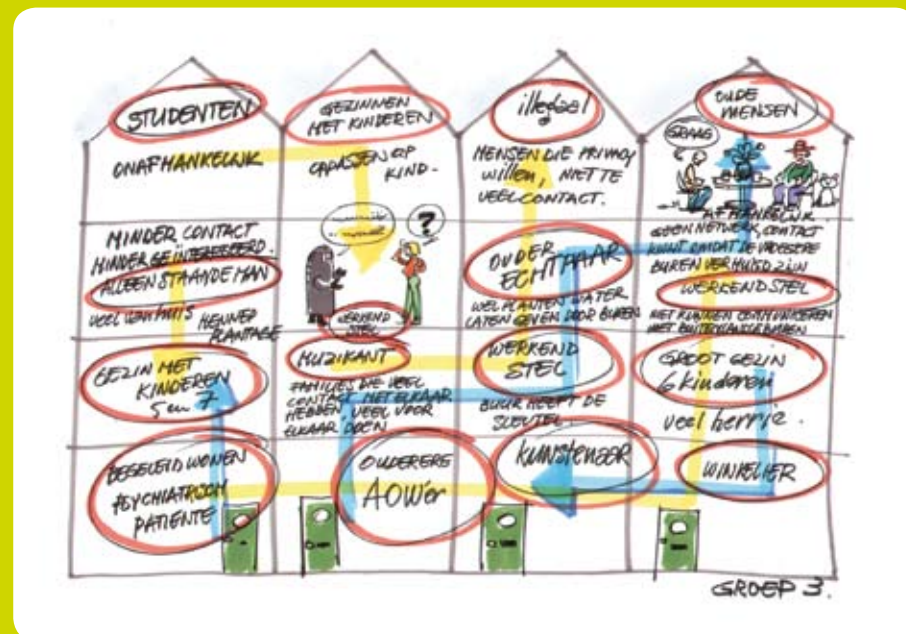 STUDENTEN
ONAFHANKELIJK
MINDER CONTACT
MINDER GEÏNTERESSEERD.
ALLEENSTAANDE MAN
veel van huis
HENNEP
PLANTAGE
GEZIN MET
KINDEREN
5 en 7
BEGELEID WONEN
PSYCHIATRISCH
PATIENTE
GEZINNEN
MET KINDEREN
OPPASSEN OP
KIND.
?
WERKEND
STEL
MUZIKANT
FAMILIES DIE VEEL
CONTACT MET ELKAAR
HEBBEN, VEEL VOOR
ELKAAR DOEN
OUDERE
AOW'er
illegaal
MENSEN DIE PRIVACY
willen, NIET TE
VEEL CONTACT.
OUDER
ECHTPAAR
WEL PLANTEN WATER
LATEN GEVEN DOOR BUREN
WERKEND
STEL
BUUR HEEFT DE
SLEUTEL.
KUNSTENAAR
OUDE
MENSEN
GRAAG
AFHANKELIJK
GEEN NETWERK, CONTACT
KOMT OMDAT DE VROEGERE
BUREN VERHUISD ZIJN
WERKEND STEL
NIET KUNNEN COMMUNICEREN
MET BUITENLANDSE BUREN
GROOT GEZIN
6 kinderen
veel herrie.
WINKELIER
GROEP 3.